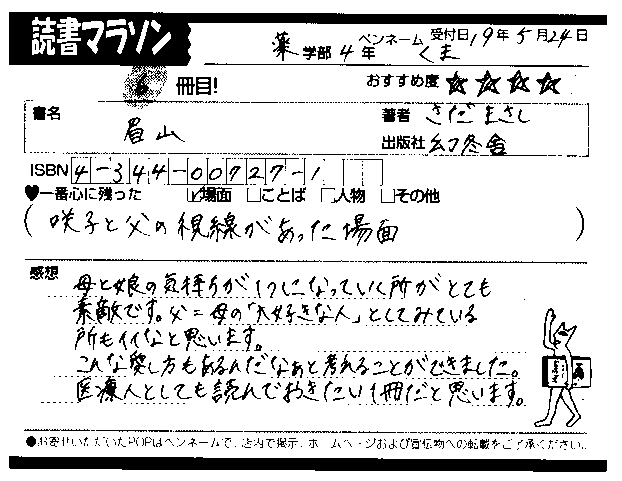 読書マラソン
薬学部4年 ペンネーム くま 受付日19年5月24日
6冊目!
おすすめ度 ☆☆☆☆
書名 眉山
著者 さだまさし
出版社 幻冬舎
ISBN 4-344-00727-1
♥一番心に残った ☑場面 □ことば □人物 □その他
(咲子と父の視線があった場面)
感想
母と娘の気持ちが1つになっていく所がとても
素敵です。父=母の「大好きな人」としてみている
所もイイなと思います。
こんな愛し方もあるんだなあと考えることができました。
医療人としても読んでおきたい1冊だと思います。
●お寄せいただいたPOPはペンネームで、店内で掲示、ホームページおよび宣伝物への転載をご了承ください。